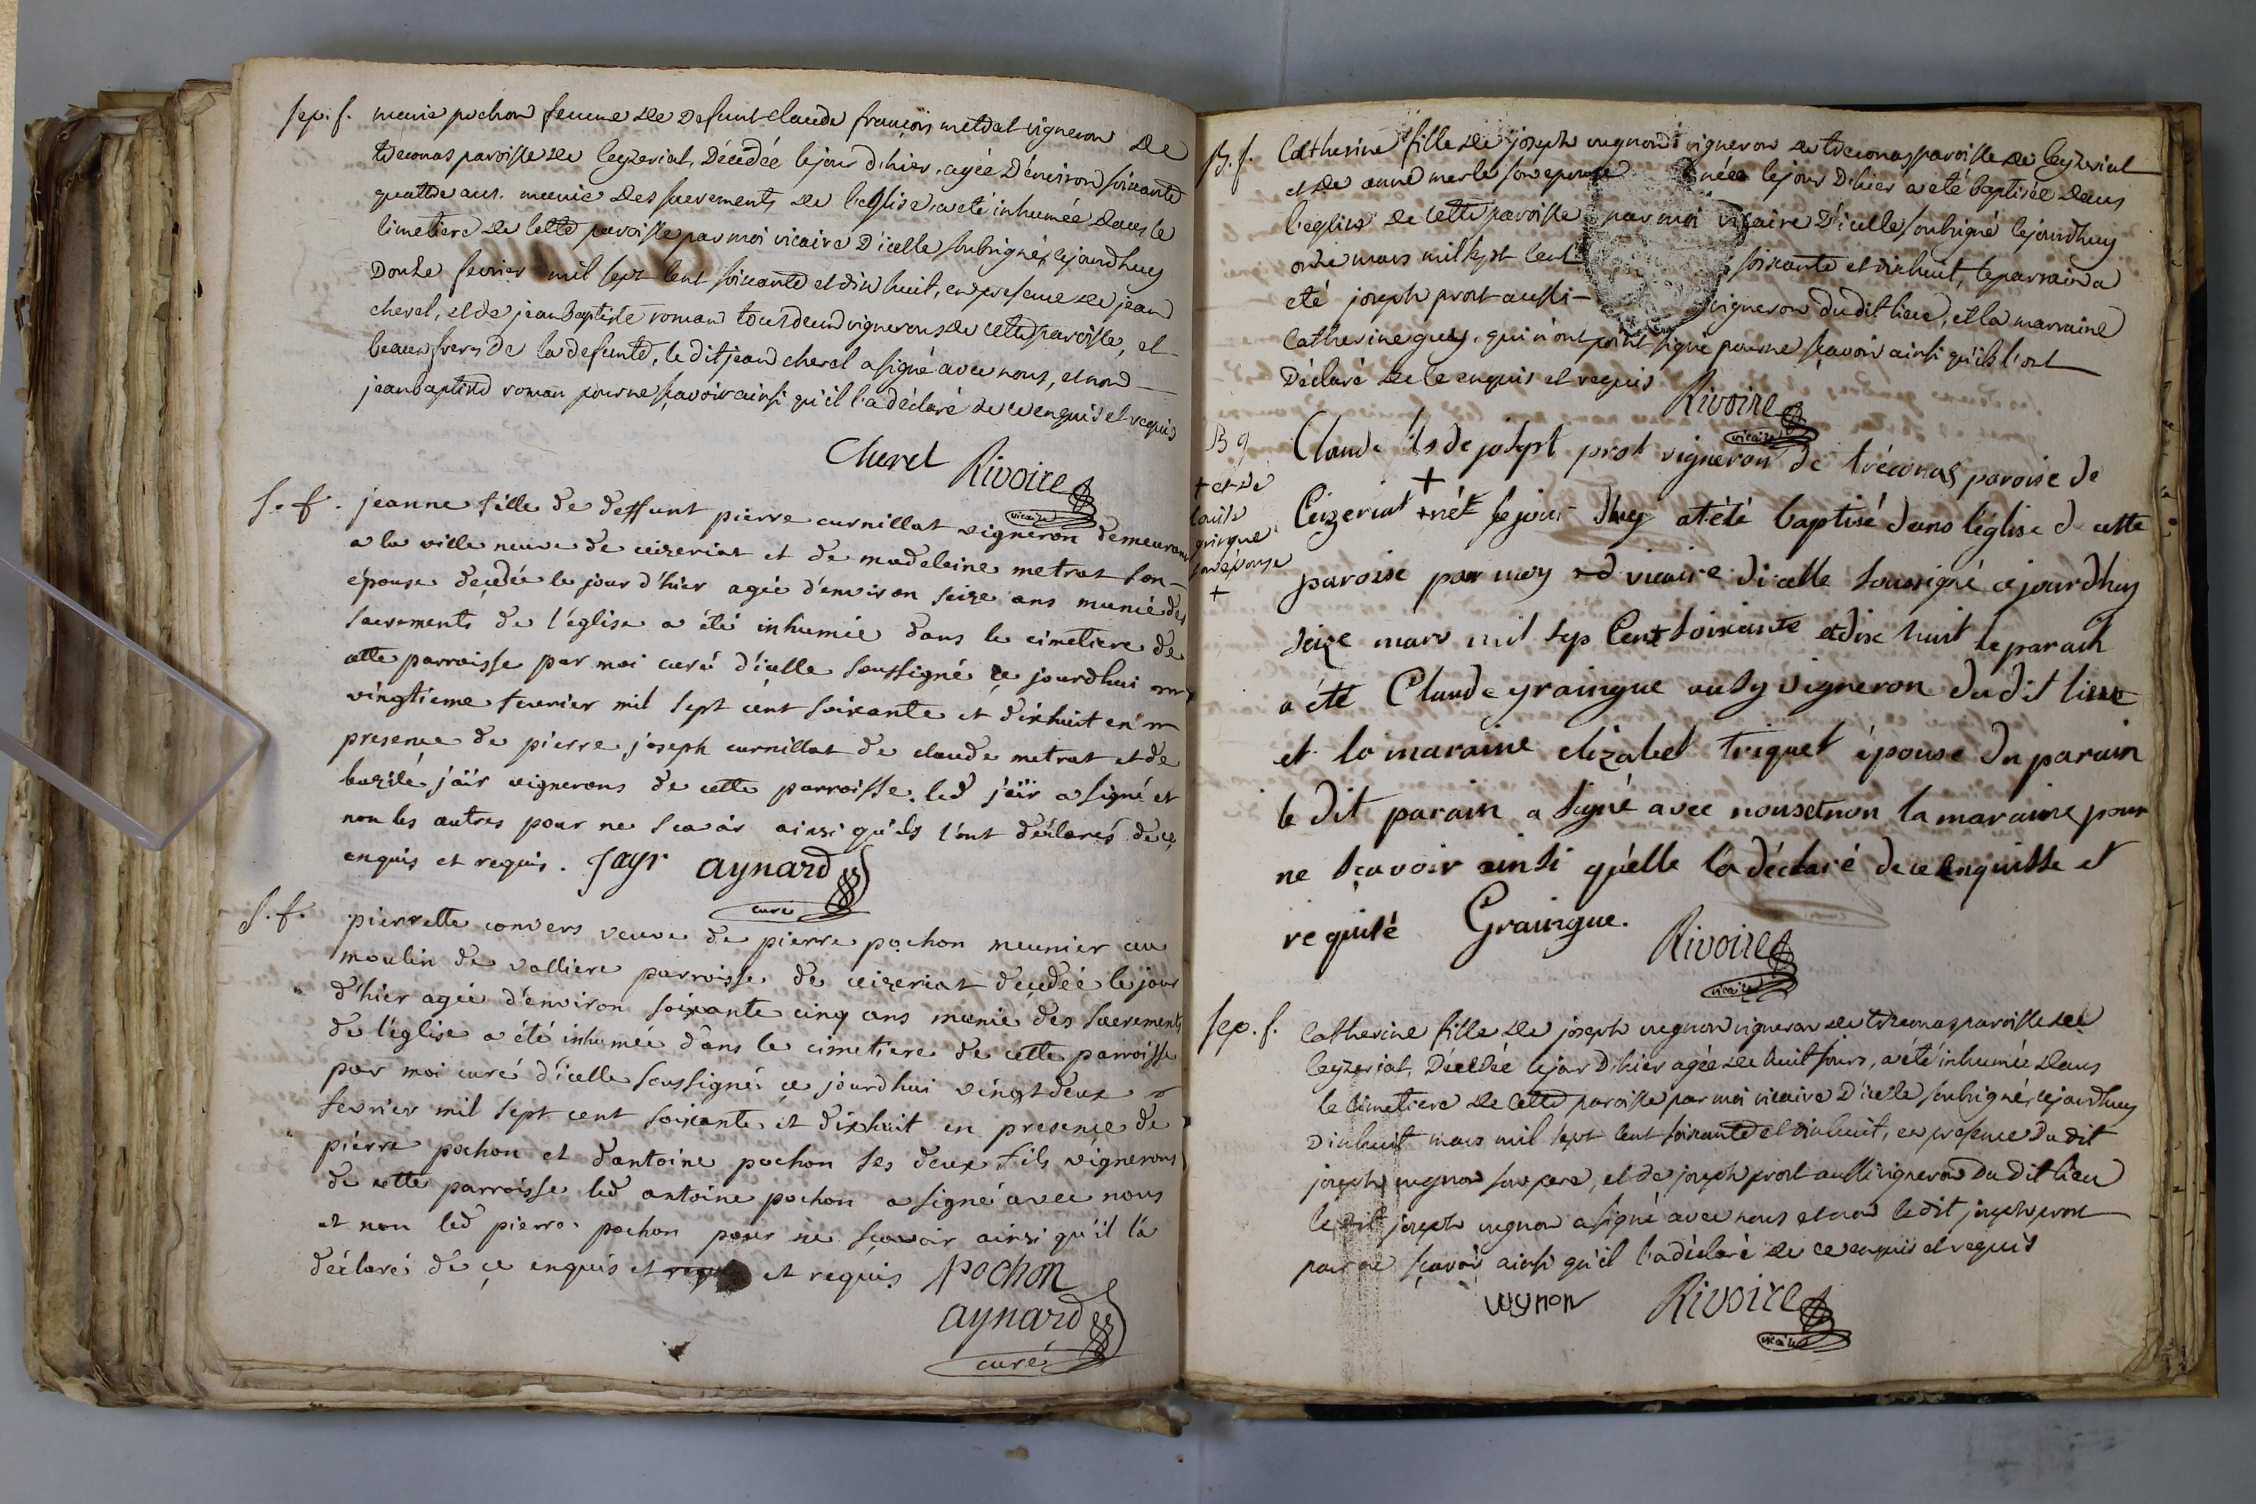 Sep. f. marie pochon femme de defunt claude françois metrat vigneron de
treconas paroisse de Ceyzeriat, Décédée le jour d'hier, agée D'environ soixante
quattre ans. munie des sacrements de l'eglise, a eté inhumée dans le
cimetiere de cette paroisse par moi vicaire D'icelle soubsigné, cejourdhuy
Douze fevrier mil sept cent soixante et dix huit, en presence de jean
cherel, et de jean baptiste roman tous deux vignerons de cette paroisse, et
beaux freres de la defunte, le dit jean cherel a signé avec nous, et non
jean baptiste roman pour ne sçavoir ainsi qu'il l'a déclaré de ce enquis et requis
Cherel Rivoire
vicaire
S. f. jeanne fille de deffunt pierre curnillat vigneron demeurant
a la ville neuve de ceizeriat et de madeleine metrat son
épouse decedée le jour d'hier agée d'environ seize ans munie des
sacrements de l'église a été inhumée dans le cimetiere de
cette parroisse par moi curé d'icelle soussigné ce jourdhui
vingtieme fevrier mil sept cent soixante et dixhuit en
presence de pierre joseph curnillat de claude metrat et de
bazile jaïr vignerons de cette parroisse. led jaïr a signé et
non les autres pour ne scavoir ainsi qu'ils l'ont déclaré de ce
enquis et requis. Jayr aynard
curé
S. f. pierrette convers veuve de pierre pochon meunier au
moulin de valliere parroisse de ceizeriat decedée le jour
d'hier agée d'environ soixante cinq ans munie des sacrements
de l'église a été inhumée dans le cimetiere de cette parroisse
par moi curé d'icelle soussigné ce jourdhui vingt deux
fevrier mil sept cent soixante et dixhuit en presence de
pierre pochon et d'antoine pochon ses deux fils vignerons
de cette parroisse led antoine pochon a signé avec nous
et non led pierre pochon pour ne sçavoir ainsi qu'il l'a
déclaré de ce enquis et et requis pochon
aynard
curé
B. f. Catherine fille de joseph vugnon vigneron de treconas paroisse de Ceyzeriat
et de anne merle son epouse née le jour D'hier a eté baptisée dans
l'eglise de cette paroisse par moi vicaire D'icelle soubsigné cejourdhuy
onze mars mil sept cent soixante et dixhuit, le parrain a
eté joseph prost aussi vigneron du dit lieu, et la marraine
Catherine guy, qui n'ont point signé pour ne sçavoir ainsi qu'ils l'ont
Déclaré de ce enquis et requis Rivoire
vicaire
B g Claude fils de josept prost vigneron de tréconas paroise de
Ceizeriat + nét le jour d'huy at été baptisé dans l'église de cette
+ et de
louise
gringue
son épouse
+
paroise par moy vicaire d'icelle soussigné ce jourdhuy
seize mars mil sep Cent soixante et dix huit le parain
a été Claude graingue ausy vigneron du dit lieu
et la maraine elizabet triquet épouse du parain
le dit parain a signé avec nous et non la maraine pour
ne sçavoir ainsi qu'elle la déclaré de ce enquisse et
requisé Graingue. Rivoire
vicaire
Sep. f. Catherine fille de joseph vugnon vigneron de treconas paroisse de
Ceyzeriat, Décédée le jour D'hier agée de huit jours, a été inhumée dans
le cimetiere de cette paroisse par moi vicaire D'icelle soubsigné, cejourdhuy
Dixhuit mars mil sept cent soixante et dixhuit, en presence du dit
joseph vugnon son pere, et de joseph prost aussi vigneron du dit lieu
le dit joseph vugnon a signé avec nous et non le dit joseph prost
pour ne sçavoir ainsi qu'il l'a déclaré de ce enquis et requis
vugnon Rivoire
vicaire